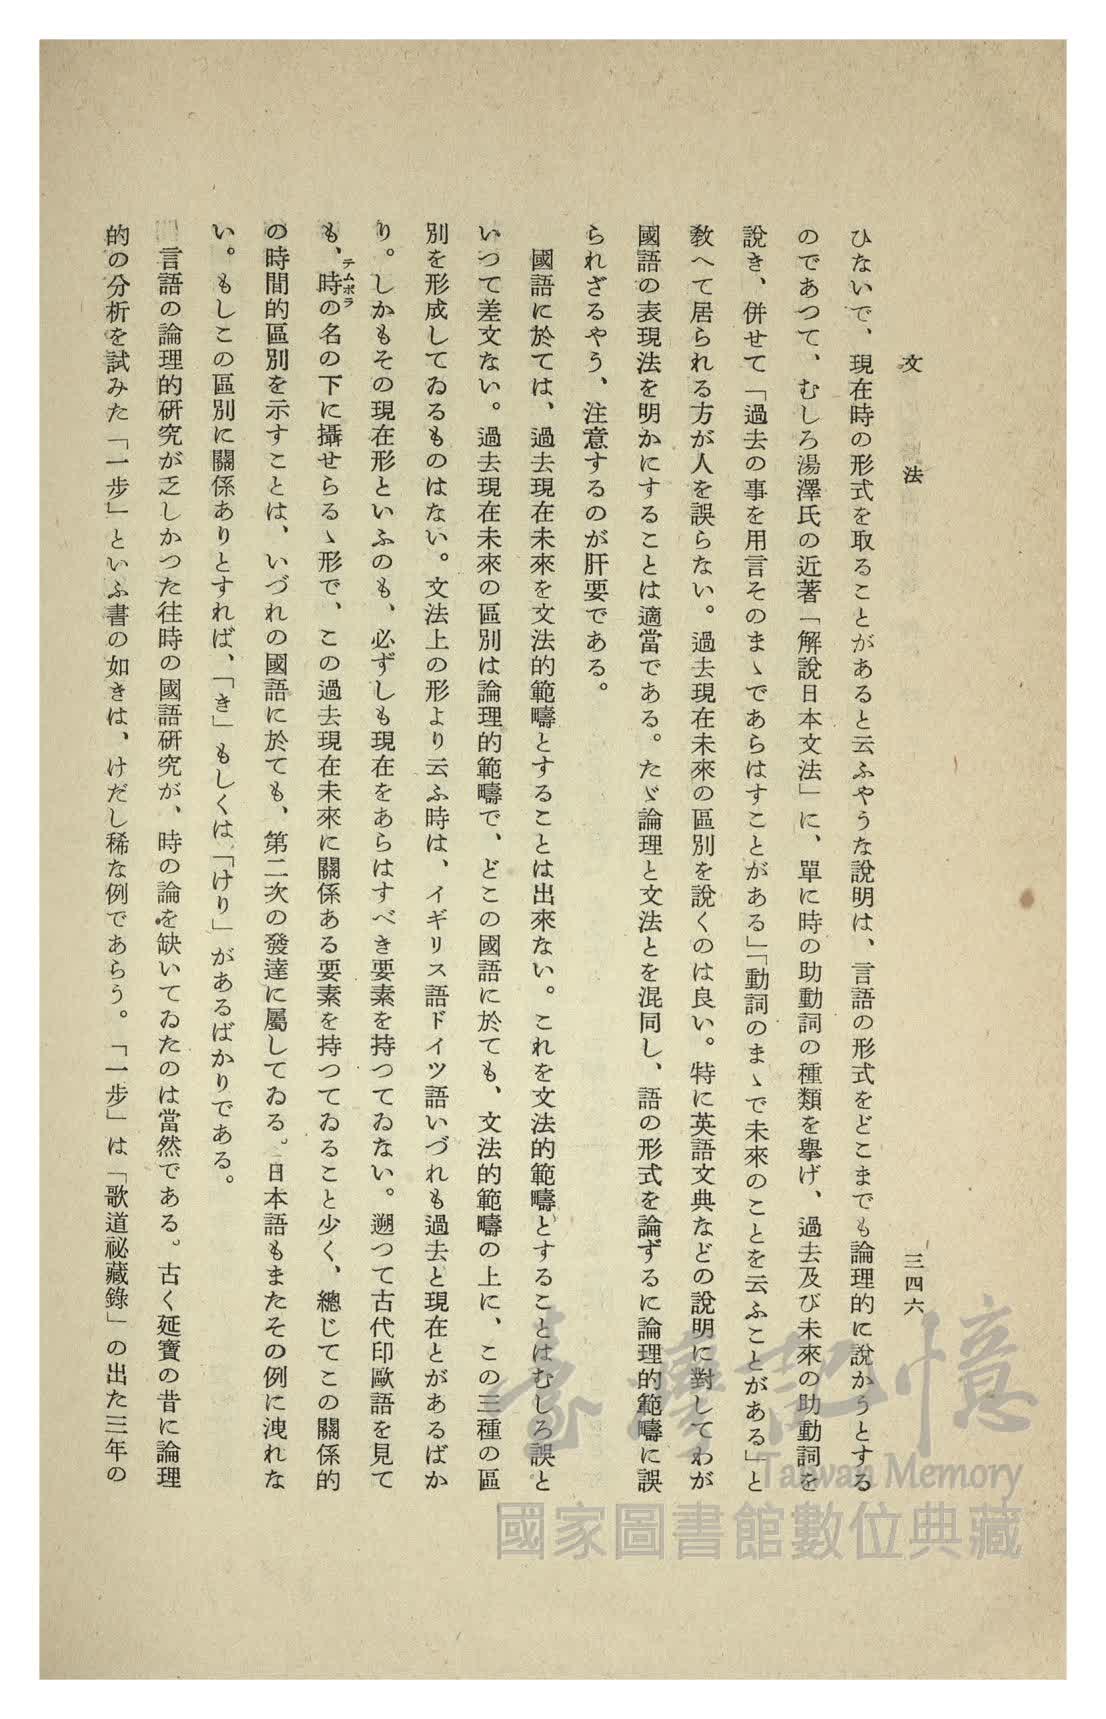 文法
三四六
ひないで、現在時の形式を取ることがあると云ふやうな說明は、言語の形式をどこまでも論理的に說かうとする
のであつて、むしろ湯澤氏の近著「解說日本文法」に、單に時の助動詞の種類を擧げ、過去及び未來の助動詞を
說き、併せて「過去の事を用言そのまゝであらはすことがある」「動詞のまゝで未來のことを云ふことがある」と
敎へて居られる方が人を誤らない。過去現在未來の區別を說くのは良い。特に英語文典などの說明に對してわが
國語の表現法を明かにすることは適當である。たゞ論理と文法とを混同し、語の形式を論ずるに論理的範疇に誤
られざるやう、注意するのが肝要である。
國語に於ては、過去現在未來を文法的範疇とすることは出來ない。これを文法的範疇とすることはむしろ誤と
いつて差支ない。過去現在未來の區別は論理的範疇で、どこの國語に於ても、文法的範疇の上に、この三種の區
別を形成してゐるものはない。文法上の形より云ふ時は、イギリス語ドイツ語いづれも過去と現在とがあるばか
り。しかもその現在形といふのも、必ずしも現在をあらはすべき要素を持つてゐない。遡つて古代印歐語を見て
も、時テムポラの名の下に攝せらるゝ形で、この過去現在未來に關係ある要素を持つてゐること少く、總じてこの關係的
の時間的區別を示すことは、いづれの國語に於ても、第二次の發達に屬してゐる。日本語もまたその例に洩れな
い。もしこの區別に關係ありとすれば、「き」もしくは「けり」があるばかりである。
言語の論理的硏究が乏しかつた往時の國語硏究が、時の論を缺いてゐたのは當然である。古く延寶の昔に論理
的の分析を試みた「一步」といふ書の如きは、けだし稀な例であらう。「一步」は「歌道祕藏錄」の出た三年の
臺灣記憶
Taiwan Memory
國家圖書館數位典藏